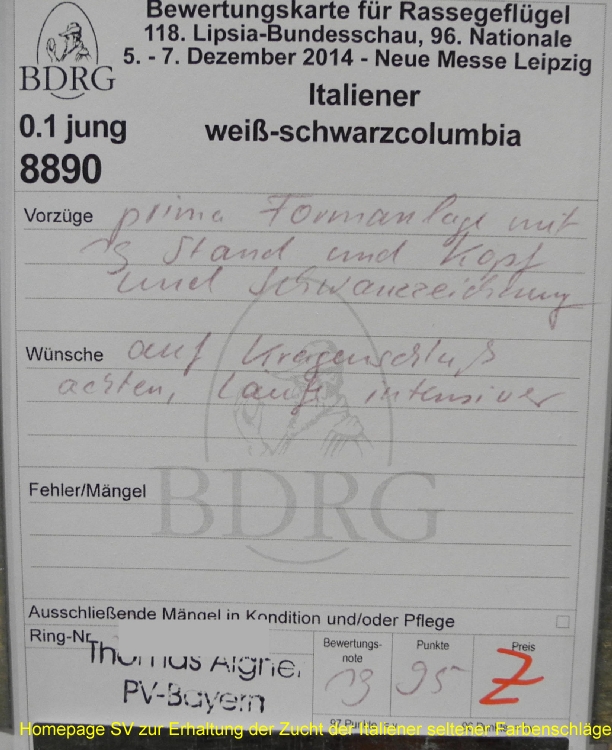 Bewertungskarte für Rassegeflügel
118. Lipsia-Bundesschau, 96. Nationale
5. - 7. Dezember 2014 - Neue Messe Leipzig
BDRG
Italiener
0.1 jung
weiß-schwarzcolumbia
8890
Vorzüge prima Formanlage mit
Stand und Kopf
und Schwanzzeichnung
Wünsche auf Kragenschluß
achten, Läufe intensiver
BDRG
Fehler/Mängel
Ausschließende Mängel in Kondition und/oder Pflege
Ring-Nr.
Thomas Aigner
PV-Bayern
Bewertungs-
note
Punkte
Preis
95
Z
97 Punkte
Homepage SV zur Erhaltung der Zucht der Italiener seltener Farbenschläge